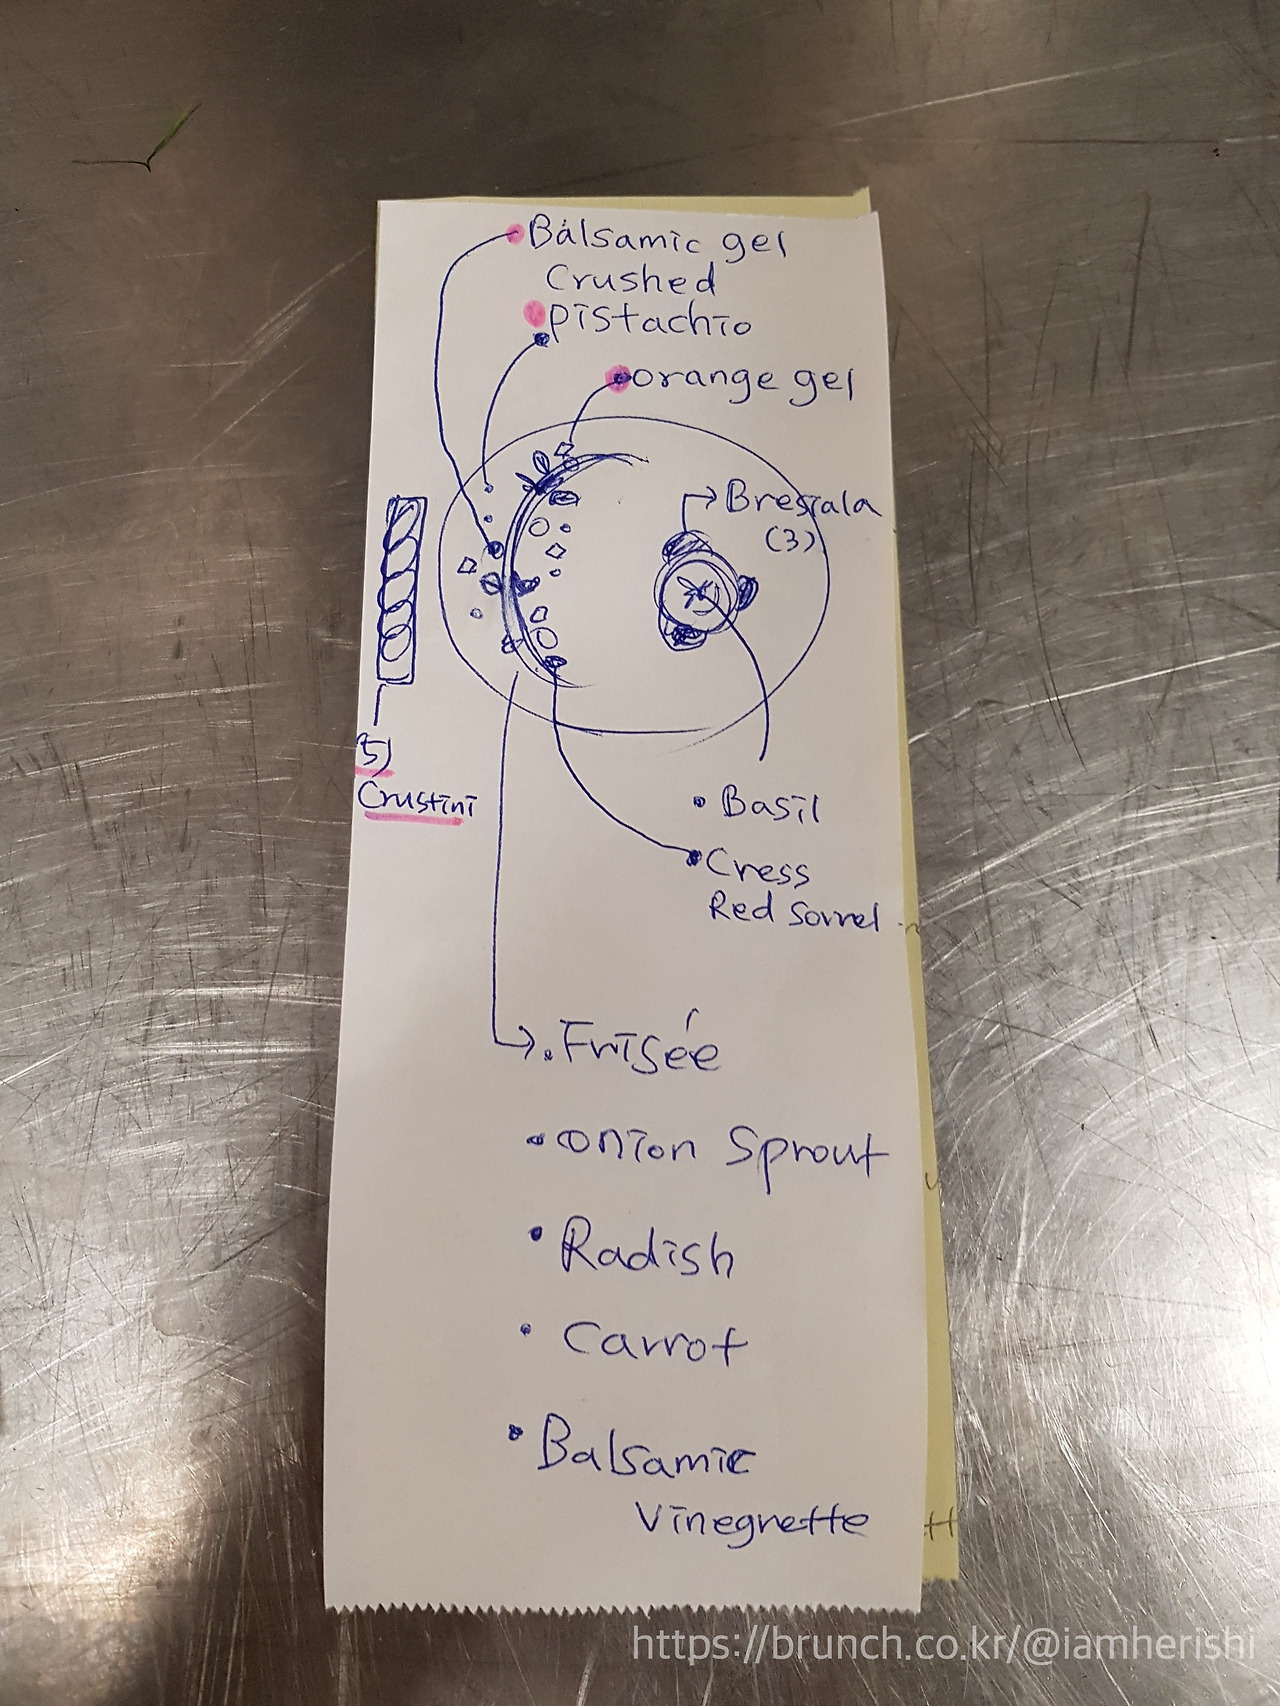 Balsamic gel
Crushed
pistachio
orange gel
Bresiala
(3)
5)
Crustini
Basil
Cress
Red Sorrel
Frisée
onion Sprout
Radish
Carrot
Balsamic
Vinegrette
https://brunch.co.kr/@iamherishi